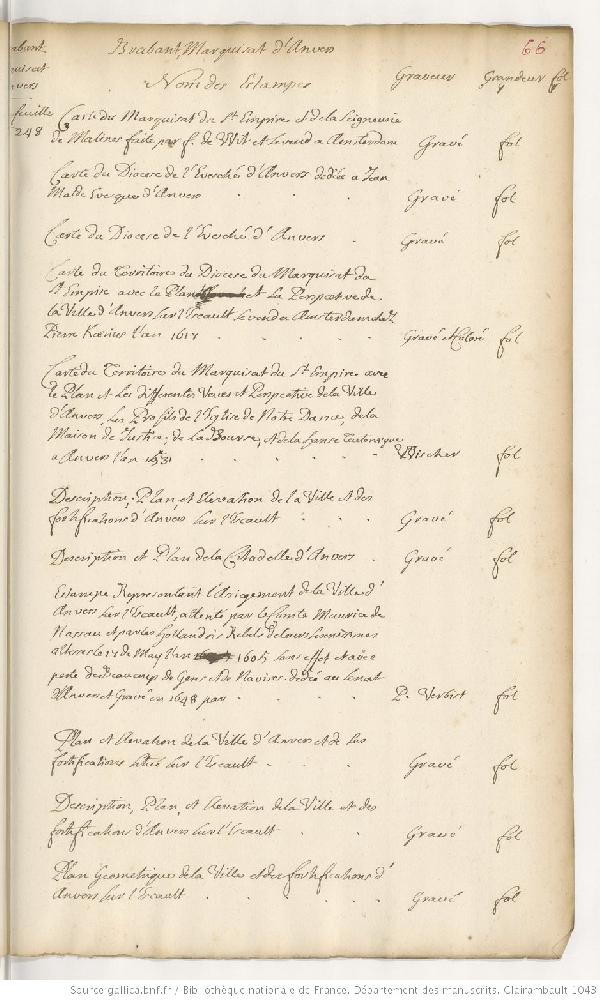 Brabant, Marquisat d'Anvers
66
Nom des Estampes Graveur Grandeur fol
feuille
248
Carte du Marquisat du St Empire et de la Seigneurie
de Malines faite par f. de Wit et se vend a Amsterdam Gravé fol
Carte du Diocese de l'Evesché d'Anvers dediée a Jean
Malde Evesque d'Anvers Gravé fol
Carte du Diocese de l'Evesché d'Anvers Gravé fol
Carte du Territoire du Diocese du Marquisat du
St Empire avec le Plan et la Perspective de
la Ville d'Anvers sur l'Escault se vend a Amsterdam chez
Pierre Kærius l'an 1617 Gravé et Coloré fol
Carte du Territoire du Marquisat du St Empire avec
le Plan et Les differentes Veues et Perspective de la Ville
d'Anvers, Les Profils de l'Eglise de Notre Dame, de la
Maison de Justice, de la Bourse, et de la hanse Teutonique
a Anvers l'an Wischer fol
Description, Plan et Elevation de la Ville et des
fortifications d'Anvers sur l'Escault Gravé fol
Description et Plan de la Citadelle d'Anvers Gravé fol
Estampe Representant l'Assiegement de la Ville d'
Anvers sur l'Escault, attenté par le Comte Maurice de
Nassau et par les hollandois Rebels
le 17 de May l'an 1605 sans effet et avec
perte de Beaucoup de Gens et de Navires dedié au Senat
d'Anvers et Gravé en 1648 par P. Verbist fol
Plan et Elevation de la Ville d'Anvers et de ses
fortifications situé sur l'Escault Gravé fol
Description, Plan, et Elevation de la Ville et des
fortifications d'Anvers sur l'Escault Gravé fol
Plan Geometrique de la Ville et des fortifications d'
Anvers sur l'Escault Gravé fol
Source gallica.bnf.fr / Bibliothèque nationale de France. Département des manuscrits. Clairambault 1043